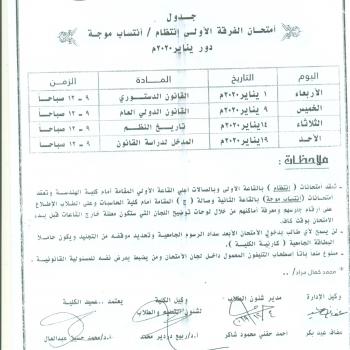 جدول
امتحان الفرقة الأولى إنتظام / أنتساب موجة
دور يناير ٢٠٢٠م
اليوم التاريخ المادة الزمن
الأربعاء ١ يناير ٢٠٢٠م القانون الدستوري ٩ - ١٢ صباحا
الخميس ٩ يناير ٢٠٢٠م القانون الدولي العام ٩ - ١٢ صباحا
الثلاثاء ١٤ يناير ٢٠٢٠م تاريخ النظم ٩ - ١٢ صباحا
الأحد ١٩ يناير ٢٠٢٠م المدخل لدراسة القانون ٩ - ١٢ صباحا
ملاحظات :
ـ تعقد امتحانات ( إنتظام ) بالقاعة الأولى وبالصالات اعلي القاعة الأولي المقامة أمام كلية الهندسة وتعقد
امتحانات ( انتساب موجة ) بالقاعة الثانية وصالة ( ج ) المقامة أمام كلية الحاسبات وعلى الطلاب الإطلاع
على أرقام جلوسهم ومعرفة أماكنهم من خلال لوحات توضيح اللجان التي ستكون معلقة خارج القاعات قبل بدء
الامتحان بوقت كاف.
ـ لن يسمح لأي طالب بدخول الامتحان الأبعد سداد الرسوم الجامعية وتحديد موقفه من التجنيد ويكون حاملا
البطاقة الجامعية ( كارنية الكلية ).
ـ ممنوع منعا باتا اصطحاب التليفون المحمول داخل لجان الامتحان ومن يضبط يعرض نفسه للمسئولية القانونية .
* محمد كمال مراد/*
وكيل الإدارة مدير شئون الطلاب وكيل الكلية يعتمد ،، عميد الكلية
لشئون التعليم والطلاب
عفاف عيد بكر أحمد حفني محمود شاكر ا.د/ربيع دردير محمد ا.د/محمد حسني عبدالعال